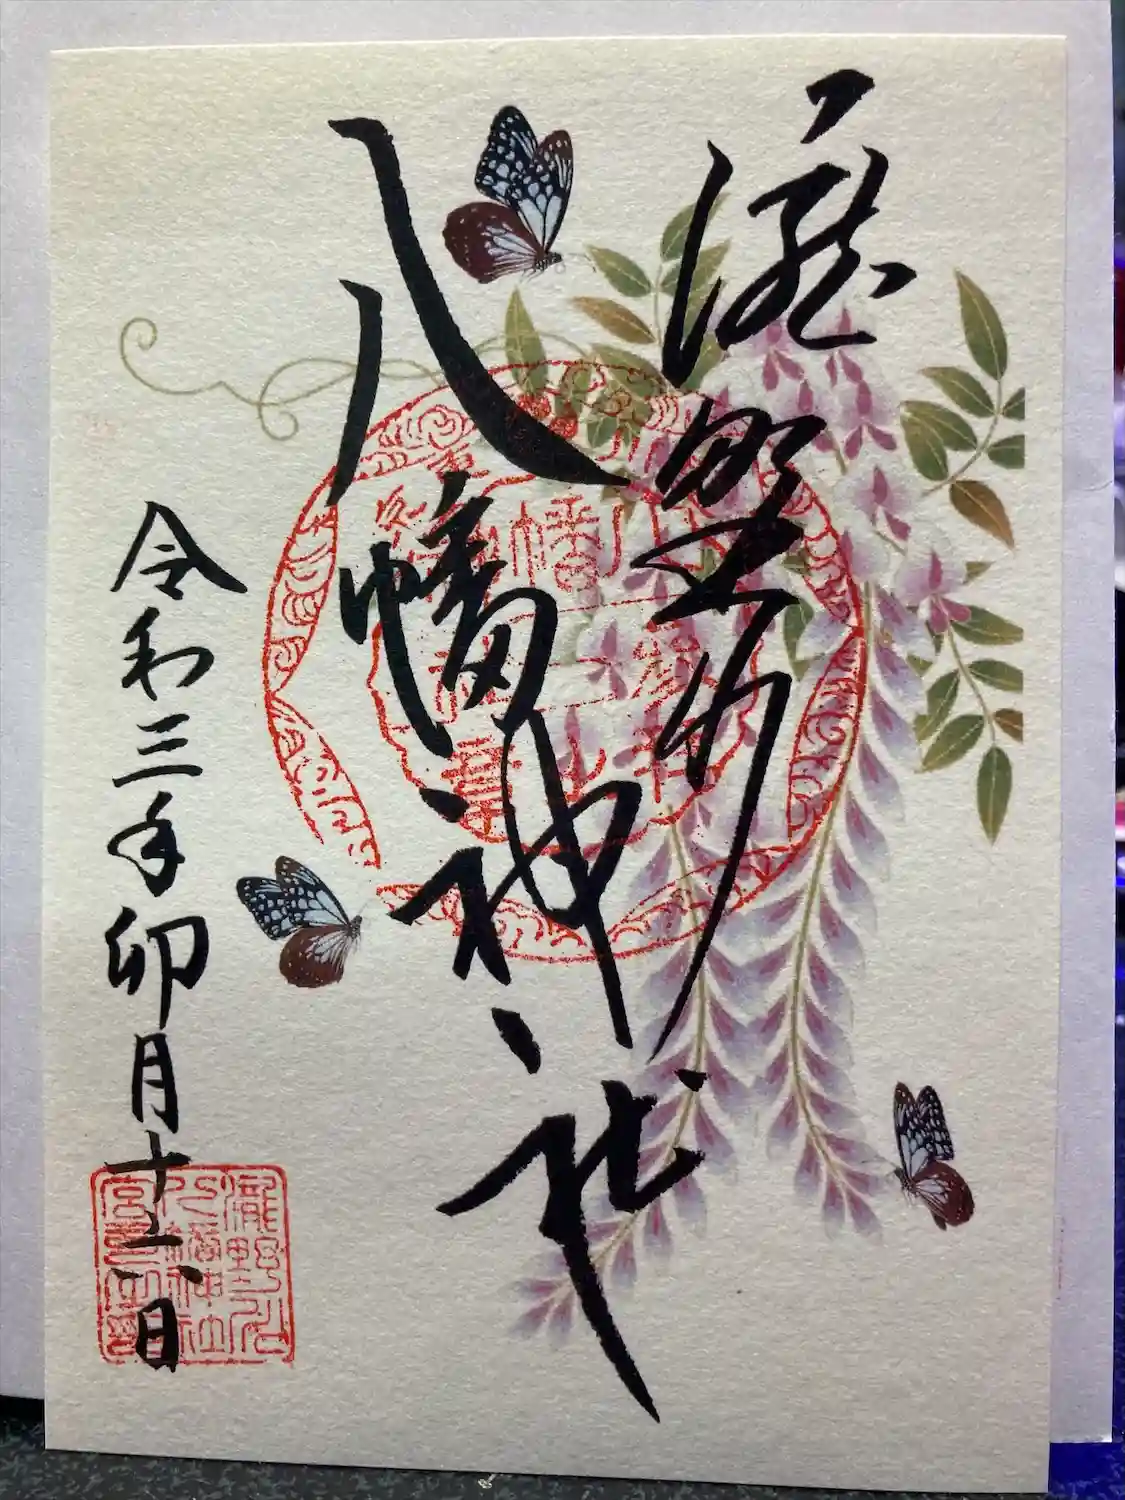 瀧野川
八幡神社
令和三年卯月十六日
瀧野川
八幡神社